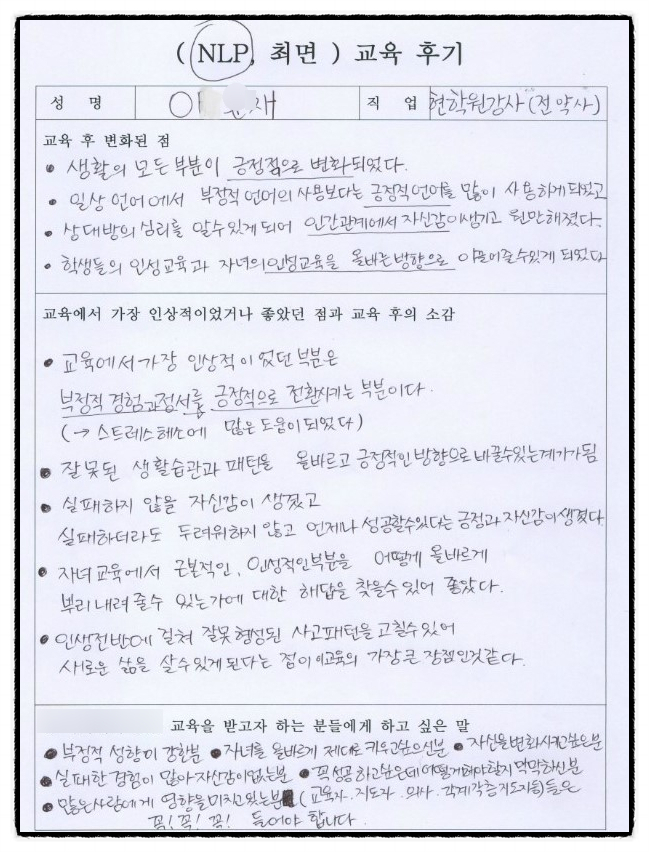 ( NLP, 최면 ) 교육 후기
성 명
직 업 현학원강사(전 약사)
교육 후 변화된 점
• 생활의 모든부분이 긍정적으로 변화되었다.
• 일상 언어에서 부정적언어의 사용보다는 긍정적언어를 많이 사용하게되었고
• 상대방의 심리를 알수있게되어 인간관계에서 자신감이생기고 원만해졌다.
• 학생들의 인성교육과 자녀의 인성교육을 올바른방향으로 이끌어줄수있게 되었다
교육에서 가장 인상적이었거나 좋았던 점과 교육 후의 소감
• 교육에서 가장 인상적이었던 부분은
부정적 경험과정서를 긍정적으로 전환시키는 부분이다.
(→ 스트레스해소에 많은 도움이 되었다)
• 잘못된 생활습관과 패턴을 올바르고 긍정적인 방향으로 바꿀수있는계기가됨
• 실패하지 않을 자신감이 생겼고
실패하더라도 두려워하지 않고 언제나 성공할수있다는 긍정과 자신감이 생겼다
• 자녀교육에서 근본적인, 인성적인부분을 어떻게 올바르게
뿌리내려 줄수 있는가에 대한 해답을 찾을수 있어 좋았다.
• 인생전반에 걸쳐 잘못형성된 사고패턴을 고칠수있어
새로운 삶을 살수있게된다는 점이 이교육의 가장큰 장점인것같다.
교육을 받고자 하는 분들에게 하고 싶은 말
• 부정적 성향이 강한분 • 자녀를 올바르게 제대로 키우고싶으신분 • 자신을변화시키고싶은분
• 실패한 경험이 많아 자신감이없는분 • 꼭성공하고싶은데 어떻게해야할지막막하신분
• 많은사람에게 영향을미치고있는분 (교육자.지도자.의사.각계각층지도자등)들은
꼭! 꼭! 꼭! 들어야 합니다.